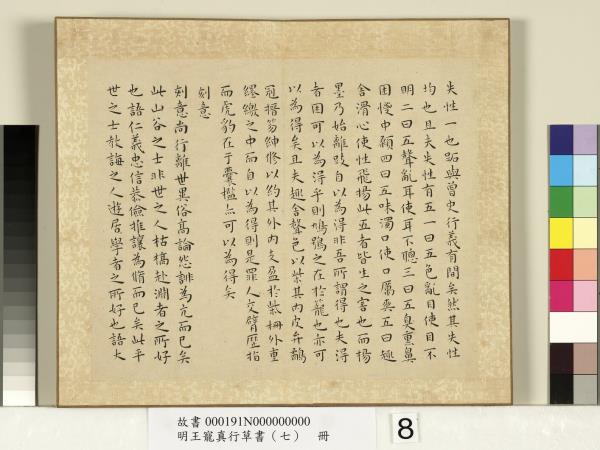 失性一也跖與曾史行義有間矣然其失性
均也且夫失性有五一曰五色亂目使目不
明二曰五聲亂耳使耳不聰三曰五臭熏鼻
困惾中顙四曰五味濁口使口厲爽五曰趣
舍滑心使性飛揚此五者皆生之害也而楊
墨乃始離跂自以為得非吾所謂得也夫得
者困可以為得乎則鳩鴞之在於籠也亦可
以為得矣且夫趣舍聲色以柴其內皮弁鷸
冠搢笏紳修以約其外內支盈於柴柵外重
繆繳之中而自以為得則是罪人交臂歷指
而虎豹在于囊檻亦可以為得矣
刻意
刻意尚行離世異俗高論怨誹為亢而已矣
此山谷之士非世之人枯槁赴淵者之所好
也語仁義忠信恭儉推讓為脩而已矣此平
世之士教誨之人遊居學者之所好也語大
故書 000191N000000000
明王寵真行草書（七） 冊
8